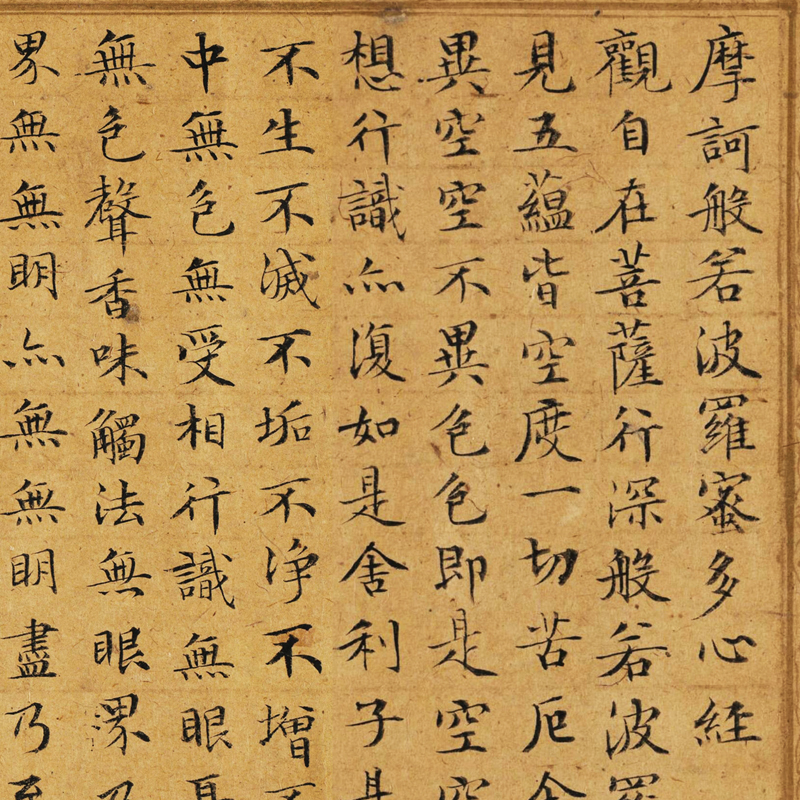 摩訶般若波羅蜜多心經
觀自在菩薩行深般若波羅
見五蘊皆空度一切苦厄舍
異空空不異色色即是空空
想行識亦復如是舍利子是
不生不滅不垢不淨不增不
中無色無受相行識無眼耳
無色聲香味觸法無眼界乃
界無無明亦無無明盡乃至